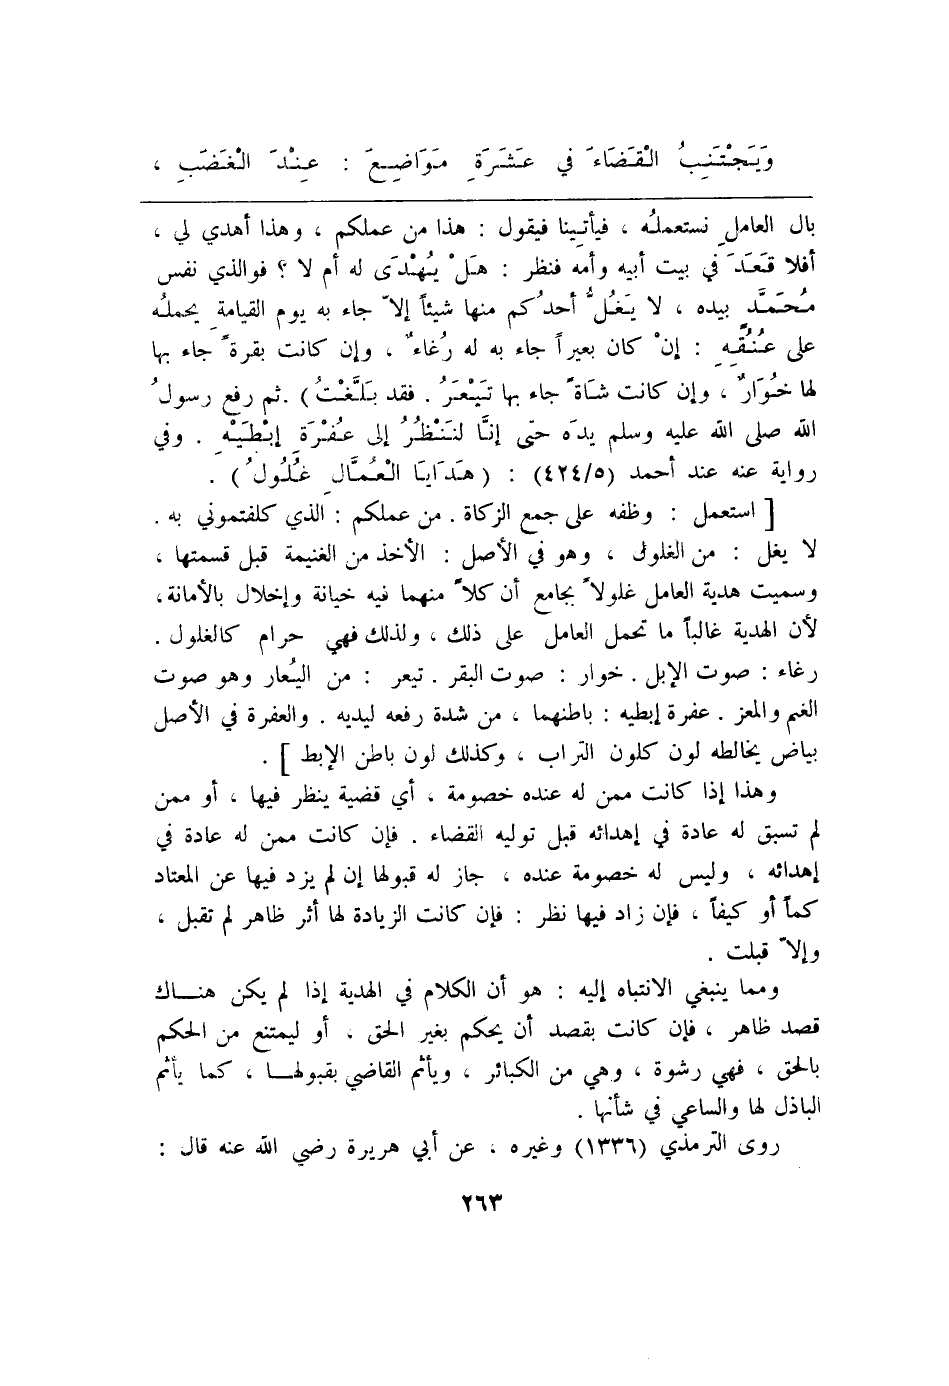 وَيَجْتَنِبُ الْقَضَاءَ في عَشَرَةِ مَوَاضِعَ : عِنْدَ الْغَضَبِ ،
بال العاملِ نستعملُه ، فيأتينا فيقول : هذا من عملكم ، وهذا أهدي لي ،
أفلا قَعَدَ في بيت أبيه وأمه فنظر : هَلْ يُهْدَى له أم لا ؟ فوالذي نفس
مُحَمَّدٍ بيده ، لا يَغُلُّ أحدُكم منها شيئاً إلاّ جاء به يوم القيامةِ يحملُه
على عُنُقِهِ : إنْ كان بعيراً جاء به له رُغاءٌ ، وإن كانت بقرةً جاء بها
لها خُوَارٌ ، وإن كانت شاةً جاء بها تَيْعَرُ . فقد بَلَّغْتُ ) .ثم رفع رسولُ
الله صلى الله عليه وسلم يدَه حتى إنَّا لنَنْظُرُ إلى عُفْرَةِ إبْطَيْهِ . وفي
رواية عنه عند أحمد (٤٢٤/٥) : ( هَدَايَا الْعُمَّالِ غُلُولٌ ) .
[ استعمل : وظفه على جمع الزكاة . من عملكم : الذي كلفتموني به .
لا يغل : من الغلول ، وهو في الأصل : الأخذ من الغنيمة قبل قسمتها ،
وسميت هدية العامل غلولاً بجامع أن كلاً منهما فيه خيانة وإخلال بالأمانة،
لأن الهدية غالباً ما تحمل العامل على ذلك ، ولذلك فهي حرام كالغلول .
رغاء : صوت الإبل . خوار : صوت البقر . تيعر : من اليُعار وهو صوت
الغنم والمعز . عفرة إبطيه : باطنهما ، من شدة رفعه ليديه . والعفرة في الأصل
بياض يخالطه لون كلون التراب ، وكذلك لون باطن الإبط ] .
وهذا إذا كانت ممن له عنده خصومة ، أي قضية ينظر فيها ، أو ممن
لم تسبق له عادة في إهدائه قبل توليه القضاء . فإن كانت ممن له عادة في
إهدائه ، وليس له خصومة عنده ، جاز له قبولها إن لم يزد فيها عن المعتاد
كماً أو كيفاً ، فإن زاد فيها نظر : فإن كانت الزيادة لها أثر ظاهر لم تقبل ،
وإلاّ قبلت .
ومما ينبغي الانتباه إليه : هو أن الكلام في الهدية إذا لم يكن هناك
قصد ظاهر ، فإن كانت بقصد أن يحكم بغير الحق ، أو ليمتنع من الحكم
بالحق ، فهي رشوة ، وهي من الكبائر ، ويأثم القاضي بقبولها ، كما يأثم
الباذل لها والساعي في شأنها .
روى الترمذي (١٣٣٦) وغيره ، عن أبي هريرة رضي الله عنه قال :
٢٦٣